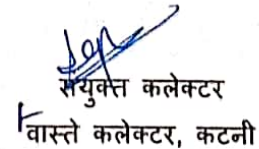 संयुक्त कलेक्टर
वास्ते कलेक्टर, कटनी